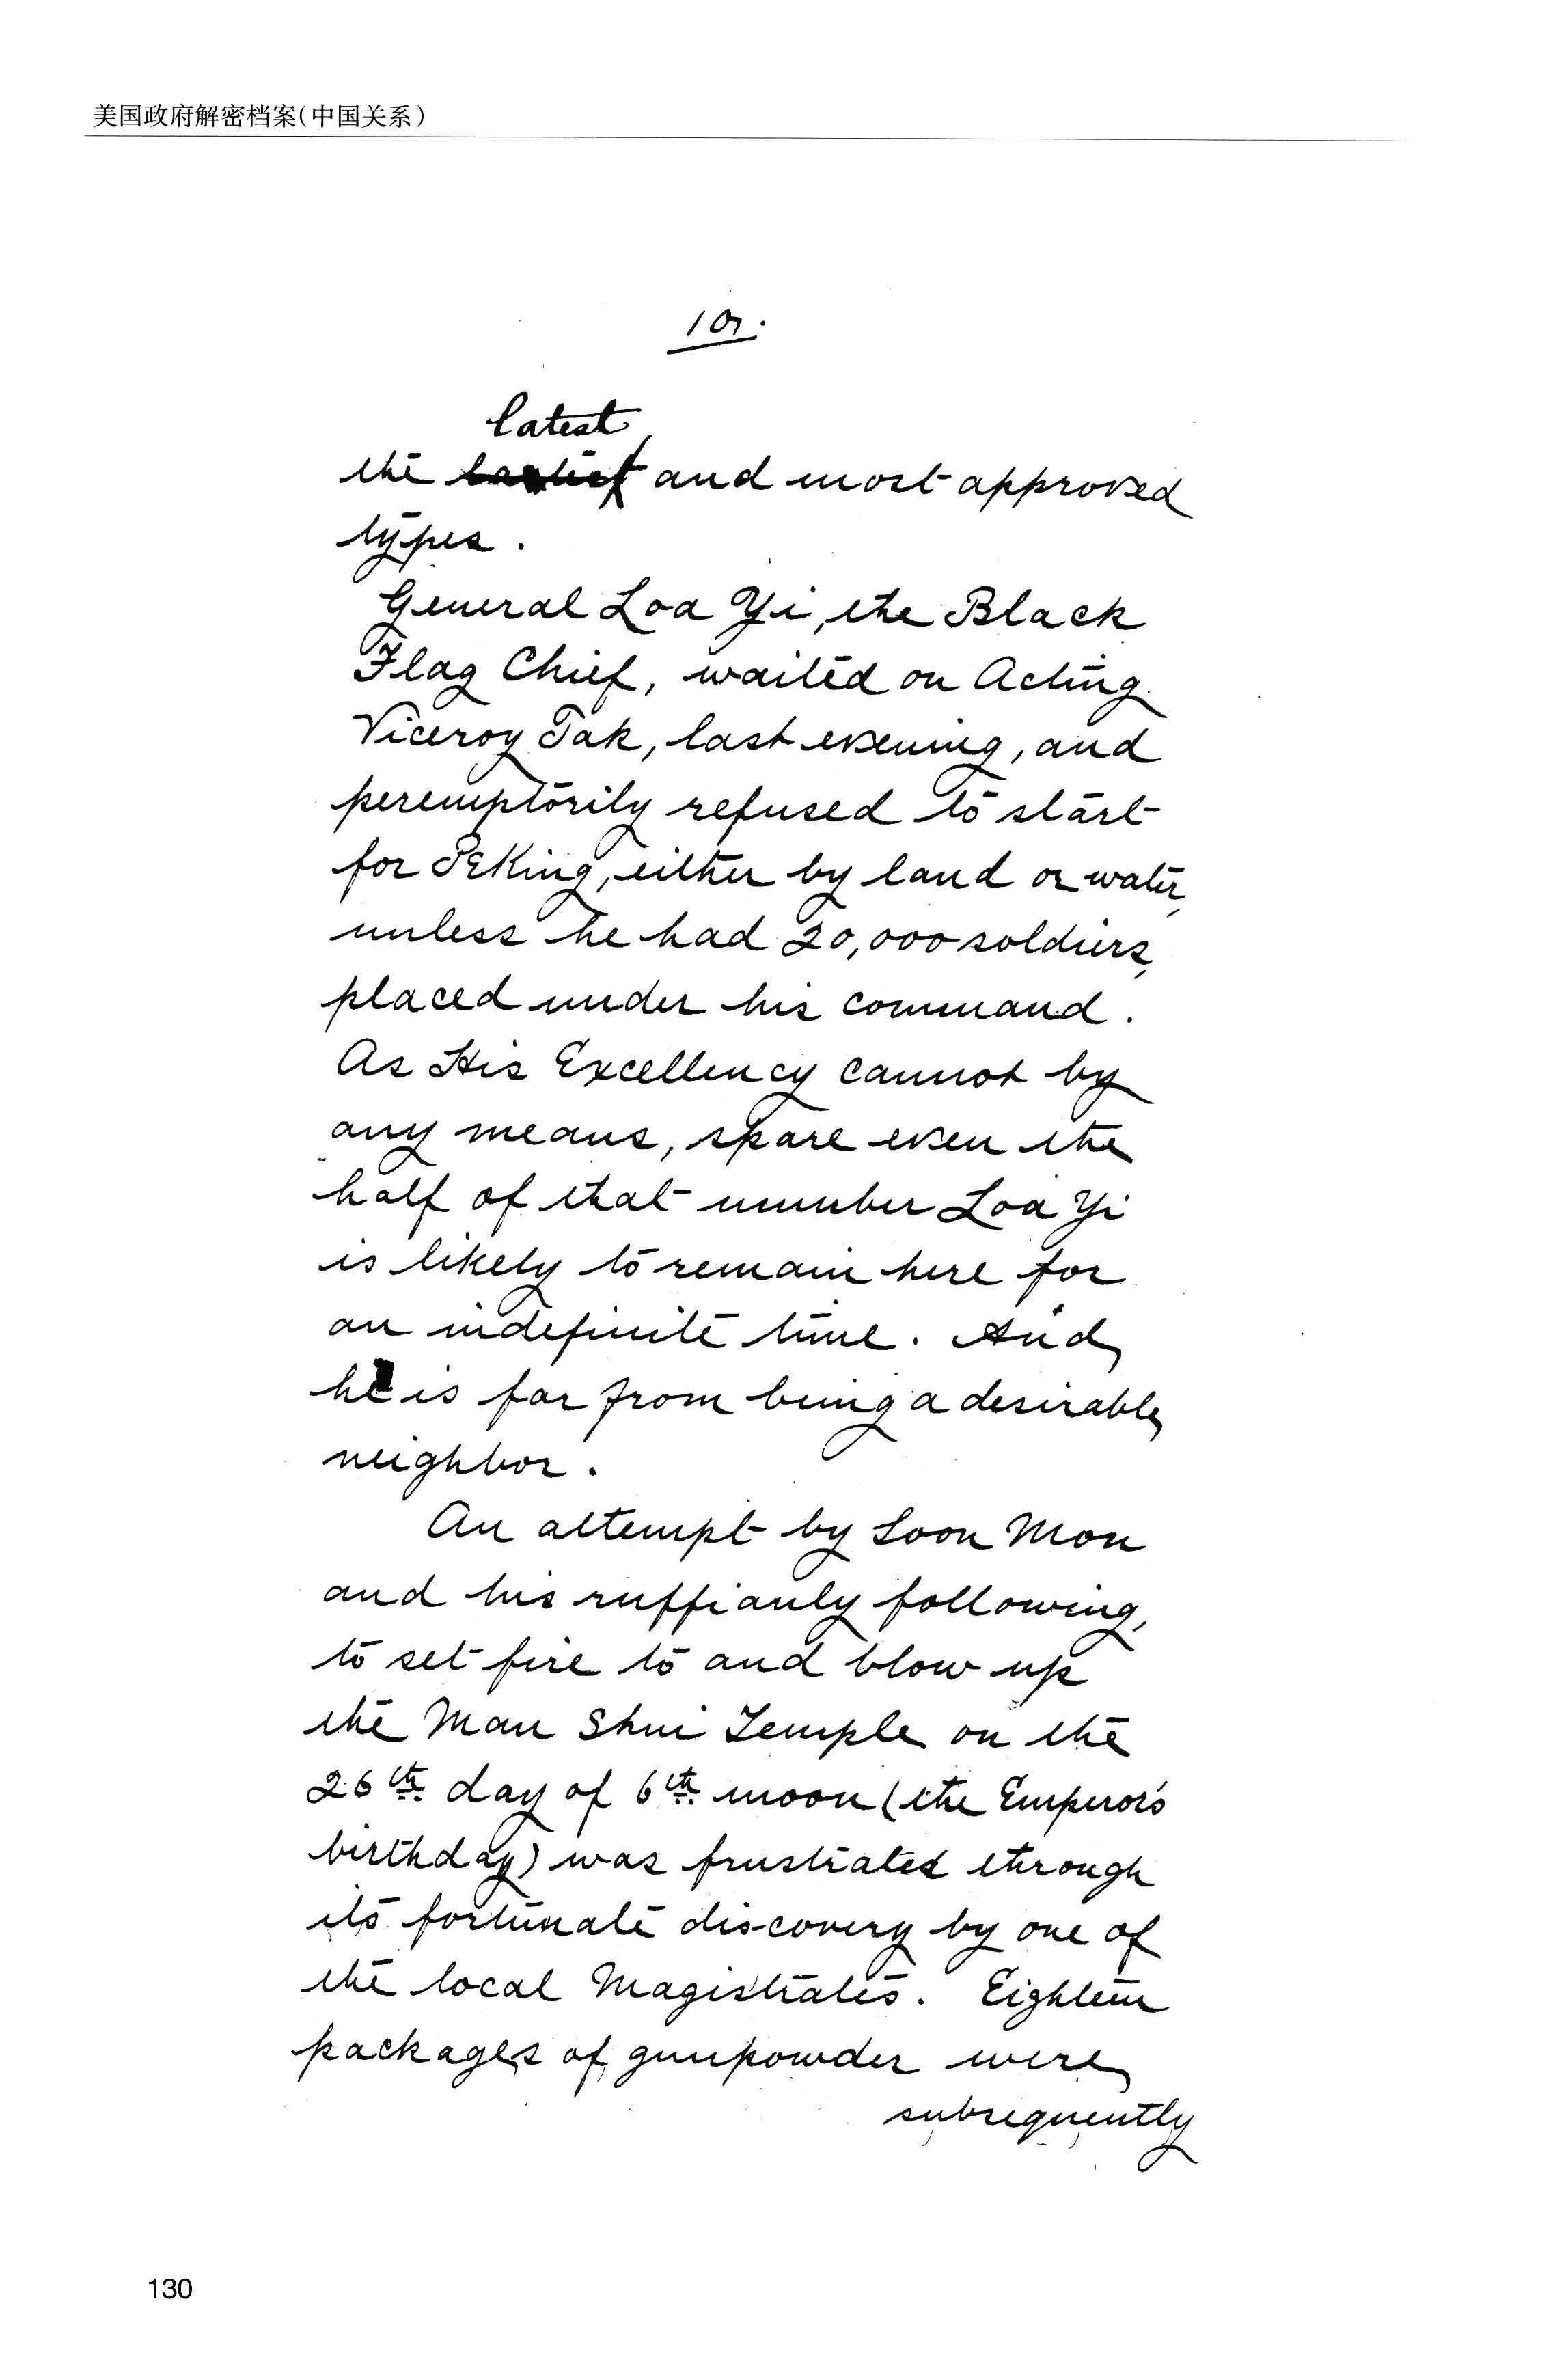 美国政府解密档案(中国关系)
10.
latest
the and most approved
types.
General Loa Yi, the Black
Flag Chief, waited on Acting
Viceroy Tak, last evening, and
peremptorily refused to start
for Peking, either by land or water,
unless he had 20,000 soldiers,
placed under his command.
As His Excellency cannot by
any means, spare even the
half of that number Loa Yi
is likely to remain here for
an indefinite time. And
he is far from being a desirable
neighbor.
An attempt by Soon Mon
and his ruffianly following,
to set fire to and blow up
the Man Shui Temple on the
26th day of 6th moon (the Emperor's
birthday) was frustrated through
its fortunate discovery by one of
the local Magistrates. Eighteen
packages of gunpowder were
subsequently
130